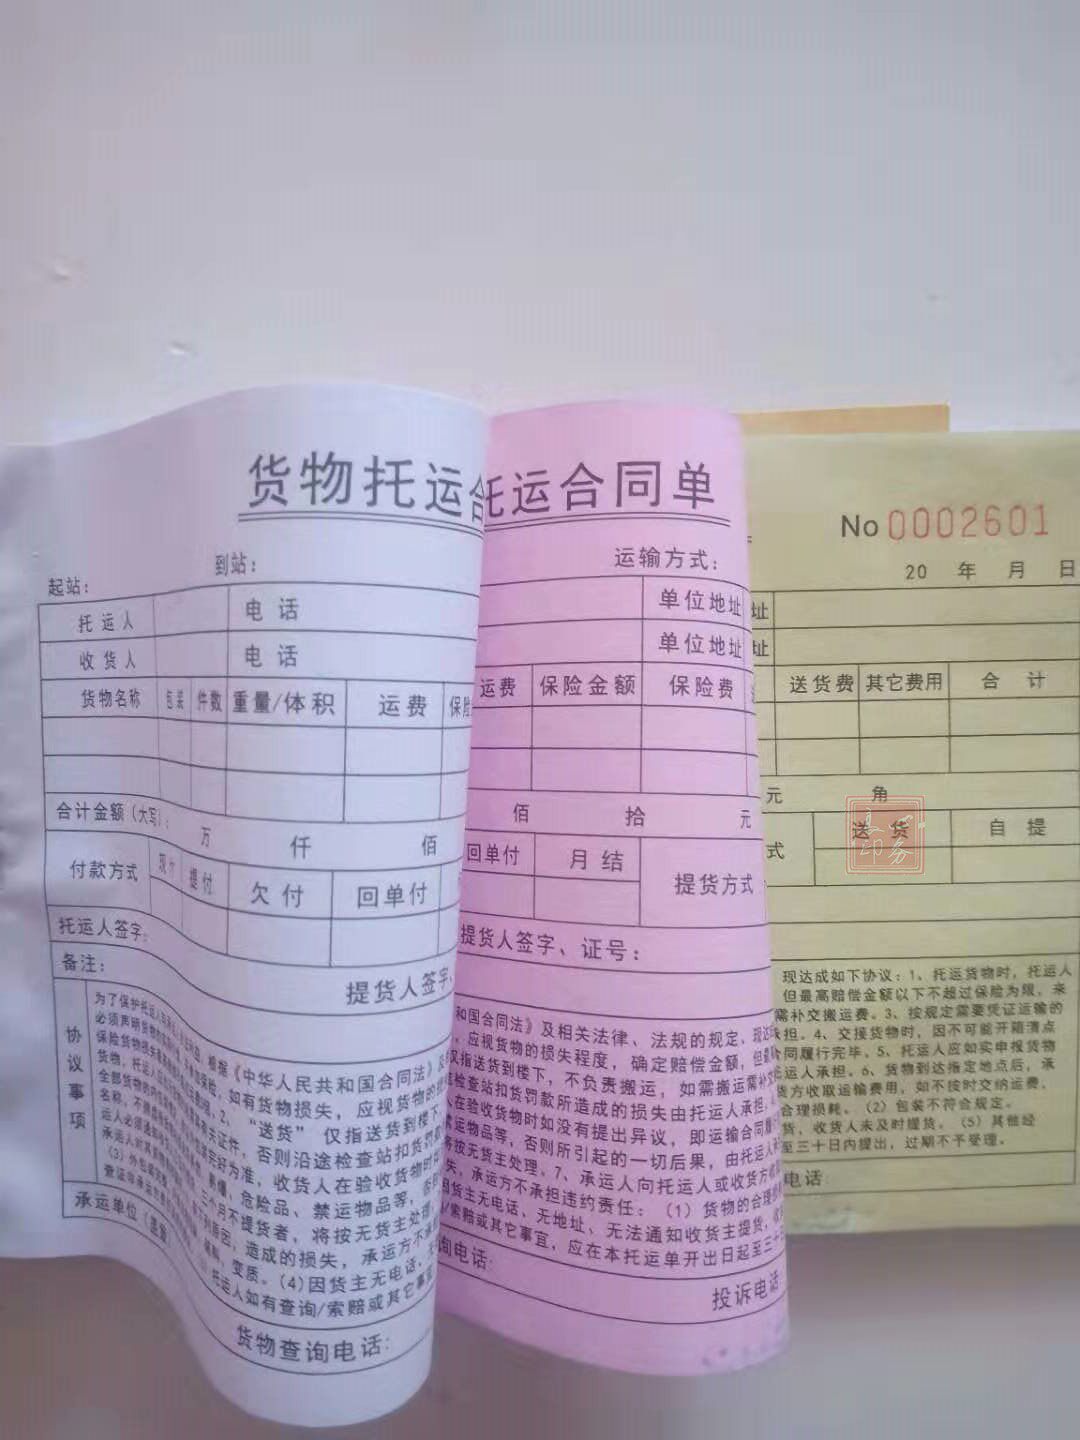 货物托运合
到站：
起站：
托运人
电话
收货人
电话
货物名称 包装 件数 重量/体积 运费 保险
合计金额（大写）： 万 仟 佰
付款方式 现付 提付 欠付 回单付
托运人签字：
备注：
提货人签字、
协议事项
为了保护托运人
必须声明货物的
保险货物损失
根据《中华人民共和国合同法》及
如有货物损失，应视货物的
2、“送货”仅指送货到楼下，
有关证件，否则沿途检查站扣货罚款
完好为准，收货人在验收货物时
易爆、危险品、禁运物品等，否则
三个月不提货者，将按无货主处理
造成的损失，承运方不承
变质。（4）因货主无电话、无
托运人如有查询/索赔或其它事宜
承运单位（盖章）
货物查询电话：
托运合同单
运输方式：
单位地址
单位地址
运费 保险金额 保险费
佰 拾 元
回单付 月结 提货方式
提货人签字、证号：
和国合同法》及相关法律、法规的规定，现达
应视货物的损失程度，确定赔偿金额，但最
仅指送货到楼下，不负责搬运，如需搬运需补
检查站扣货罚款所造成的损失由托运人承担。
在验收货物时如没有提出异议，即运输合同履
禁运物品等，否则所引起的一切后果，由托运人
将按无货主处理。7、承运人向托运人或收货方
失，承运方不承担违约责任：（1）货物的合理
因货主无电话、无地址、无法通知收货主提货，收
索赔或其它事宜，应在本托运单开出日起至三十
询电话：
投诉电话：
No 0002601
20 年 月 日
址
址
送货费 其它费用 合计
元 角
式 送货 自提
印务
现达成如下协议：1、托运货物时，托运人
但最高赔偿金额以下不超过保险为限，来
需补交搬运费。3、按规定需要凭证运输的
承担。4、交接货物时，因不可能开箱清点
合同履行完毕。5、托运人应如实申报货物
托运人承担。6、货物到达指定地点后，承
货方收取运输费用，如不按时交纳运费，
合理损耗。（2）包装不符合规定。
货，收货人未及时提货。（5）其他经
至三十日内提出，过期不予受理。
电话